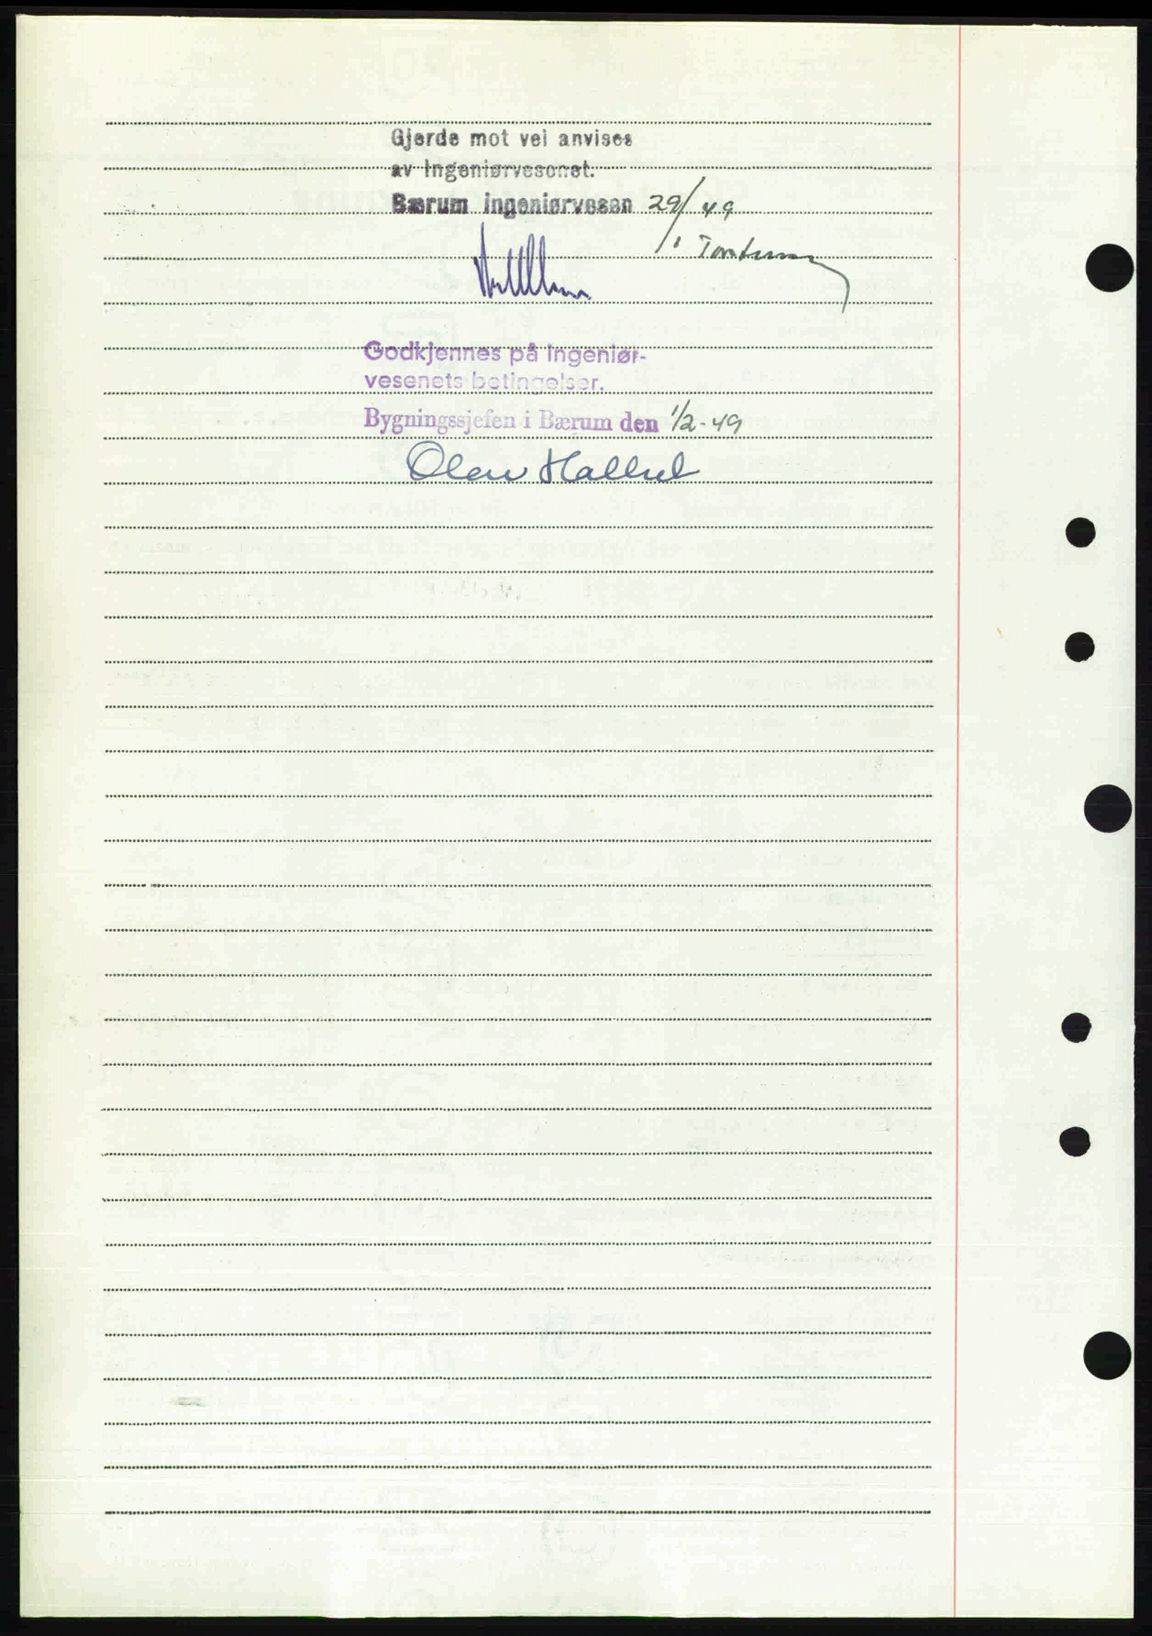 Gjerde mot vei anvises
av Ingeniørvesenet.
Bærum ingeniørvesen 29/1 49
Godkjennes på Ingeniør-
vesenets betingelser.
Bygningssjefen i Bærum den 1/2-49
Olav Hallset